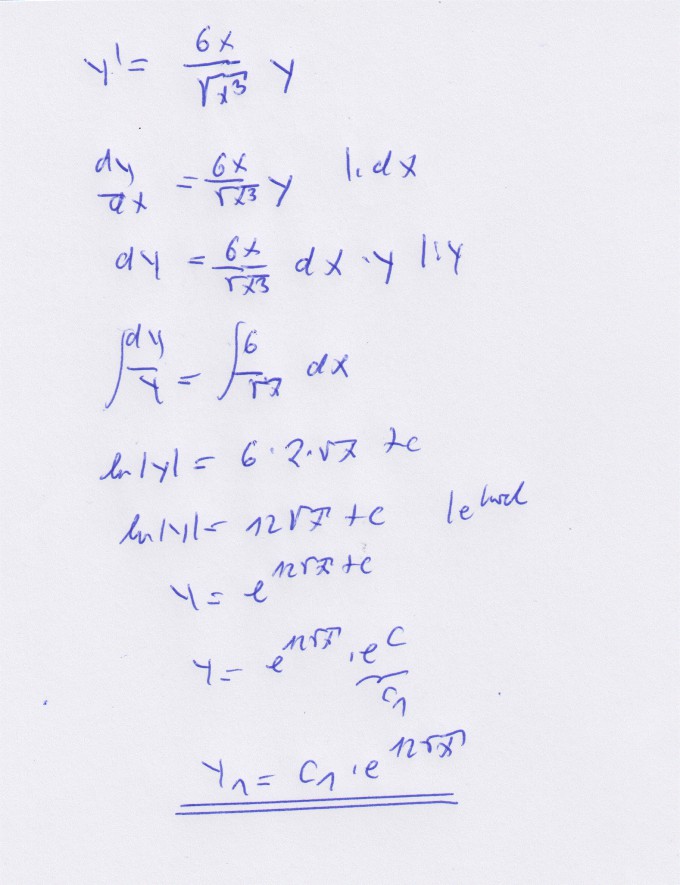 y' = 6x/√x³ y
dy/dx = 6x/√x³ y |· dx
dy = 6x/√x³ dx · y |:y
∫ dy/y = ∫ 6/√x dx
ln|y| = 6 · 2 · √x + c
ln|y| = 12√x + c |e
y = e^(12√x + c)
y = e^(12√x) · e^C
C₁
y₁ = C₁ · e^(12√x)